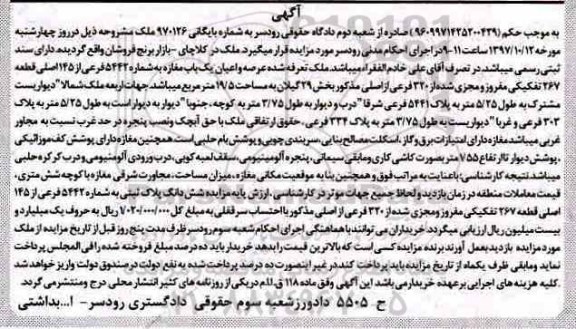 آگهی
به موجب حکم (۹۶۰۹۹۷۱۴۳۵۲۰۰۴۳۹) صادره از شعبه دوم دادگاه حقوقی رودسر به شماره بایگانی ۹۷۰۱۲۶ ملک مشروحه ذیل در روز چهارشنبه
مورخه ۱۳۹۷/۱۰/۱۲ ساعت ۱۱-۹ در اجرای احکام مدنی رودسر مورد مزایده قرار میگیرد. ملک در کلاچای-بازار برنج فروشان واقع گردیده، دارای سند
ثبتی رسمی میباشد. در تصرف آقای علی خادم الفقراء میباشد. ملک تعرفه شده عرصه و اعیان یک باب مغازه به شماره ۵۴۴۲ فرعی از ۱۴۵ اصلی قطعه
۲۶۷ تفکیکی مفروز و مجزی شده از ۳۲۰ فرعی از اصلی مذکور بخش ۲۹ گیلان به مساحت ۱۹/۵ متر مربع میباشد. جهات اربعه ملک شمالا" دیواریست
مشترک به طول ۵/۲۵ متر به پلاک ۵۴۴۱ فرعی شرقا" درب و دیوار به طول ۳/۷۵ متر به کوچه، جنوبا" دیوار به دیوار است به طول ۵/۲۵ متر به پلاک
۳۰۳ فرعی و غربا" دیواریست به طول ۳/۷۵ متر به پلاک ۳۳۴ فرعی، حقوق ارتفاقی ملک با حق آبچک ونصب پنجره در حد غرب نسبت به مجاور
غربی میباشد مغازه دارای امتیازات برق و گاز، اسکلت مصالح بنایی، سربندی چوبی و پوشش بام حلبی است. همچنین مغازه دارای پوشش کف موزائیکی
، پوشش دیوار تا ارتفاع ۷۵۵ متر بصورت کاشی کاری ومابقی سیمانی، پنجره آلومینیومی، سقف لمبه کوبی، درب ورودی آلومینیومی و درب کرکره حلبی
میباشد. نتیجه کارشناسی: باعنایت به مراتب فوق و همچنین بنا به موقعیت مکانی مغازه، میزان مساحت، مجاورت شرقی مغازه با کوچه شش متری،
قیمت معاملات منطقه در زمان بازدید و لحاظ جمیع جهات موثر در کارشناسی، ارزش پایه مزایده شش دانگ پلاک ثبتی به شماره ۵۴۴۲ فرعی از ۱۴۵
اصلی قطعه ۲۶۷ تفکیکی مفروز و مجزی شده از ۳۲۰ فرعی از اصلی مذکور با احتساب سرقفلی به مبلغ کل ۷/۰۲۰/۰۰۰/۰۰۰ ریال به حروف یک میلیارد و
بیست میلیون ریال ارزیابی میگردد خریداران می توانند با هماهنگی اجرای احکام شعبه سوم رودسر ظرف مدت پنج روز قبل از تاریخ مزایده از ملک
مورد مزایده بازدید بعمل آورند برنده مزایده کسی است که بالاترین قیمت را بدهد. خریدار باید ده درصد مبلغ فروخته شده رافی المجلس پرداخت
نماید ومابقی ظرف یکماه از تاریخ مزایده باید پرداخت کند در غیر اینصورت ده درصد پرداخت شده به نفع دولت در صندوق دولت واریز خواهد شد
. کلیه هزینه های اجرایی بر عهده خریدار می باشد. این آگهی وفق ماده ۱۱۸ ق.ا.ا.م در یکی از روزنامه های کثیر انتشار محلی درج و منتشر می گردد.
ح ۵۵۰۵ دادورز شعبه سوم حقوقی دادگستری رودسر- ا...بداشتی